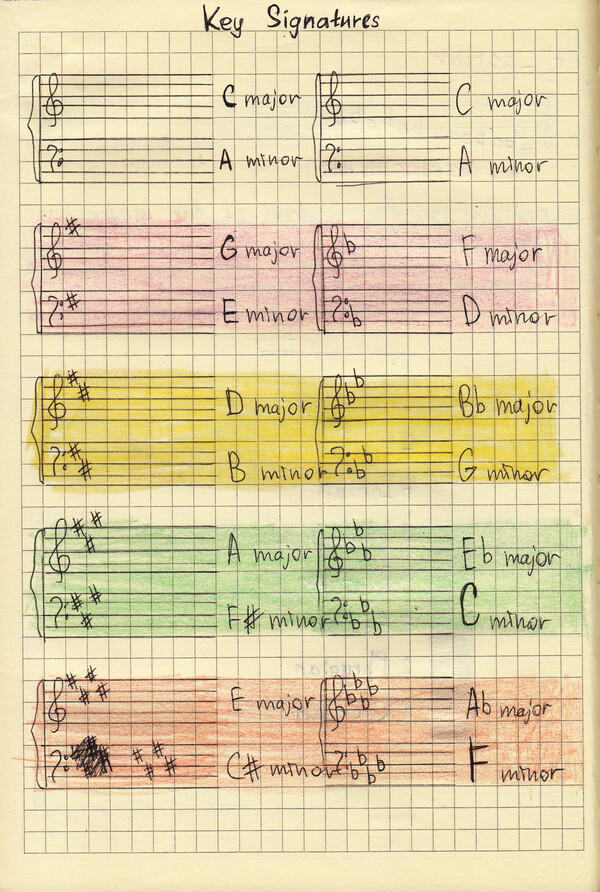 Key Signatures
C major C major
A minor A minor
G major F major
E minor D minor
D major Bb major
B minor G minor
A major Eb major
F# minor C minor
E major Ab major
C# minor F minor